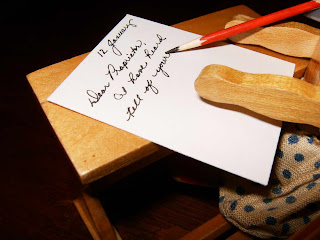 12 January
Dear Proprietor,
I have heard
tell of your